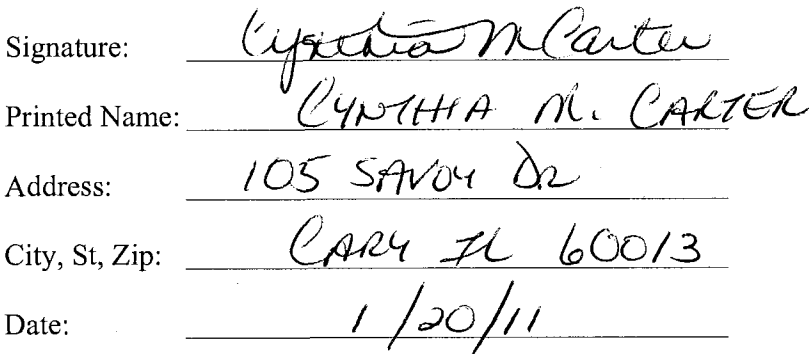 Signature: Cynthia M Carter
Printed Name: CYNTHIA M. CARTER
Address: 105 SAVOY DR
City, St, Zip: CARY IL 60013
Date: 1/20/11